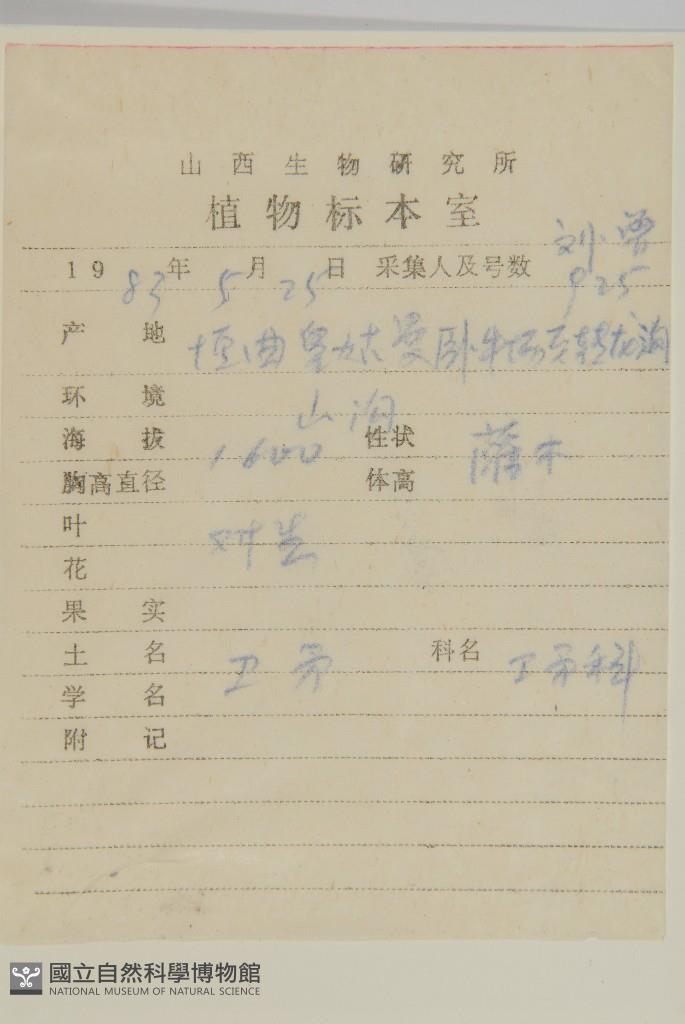 山西生物研究所
植物标本室
1983年5月25日 采集人及号数 刘 925
产地 垣曲皇姑曼卧牛场 转龙沟
环境 山沟
海拔 1600 性状 藤木
胸高直径 体高
叶 对生
花
果实
土名 卫矛 科名 卫矛科
学名
附记
國立自然科學博物館
NATIONAL MUSEUM OF NATURAL SCIENCE